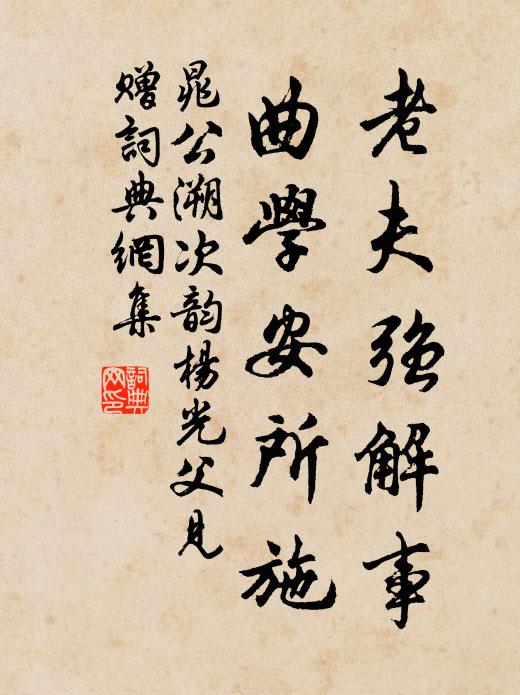 老夫強解事
曲學安所施
晁公溯次韵楊光父見
贈詞典網集
詞典
网印